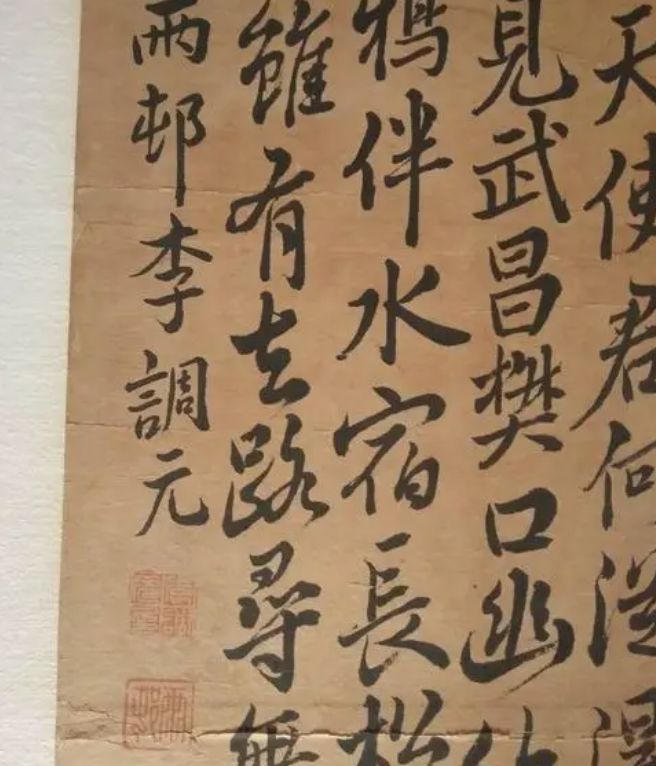 天使君何從
見武昌樊口幽
鴉伴水宿長松
雖有去路尋無
雨邨李調元
雨邨